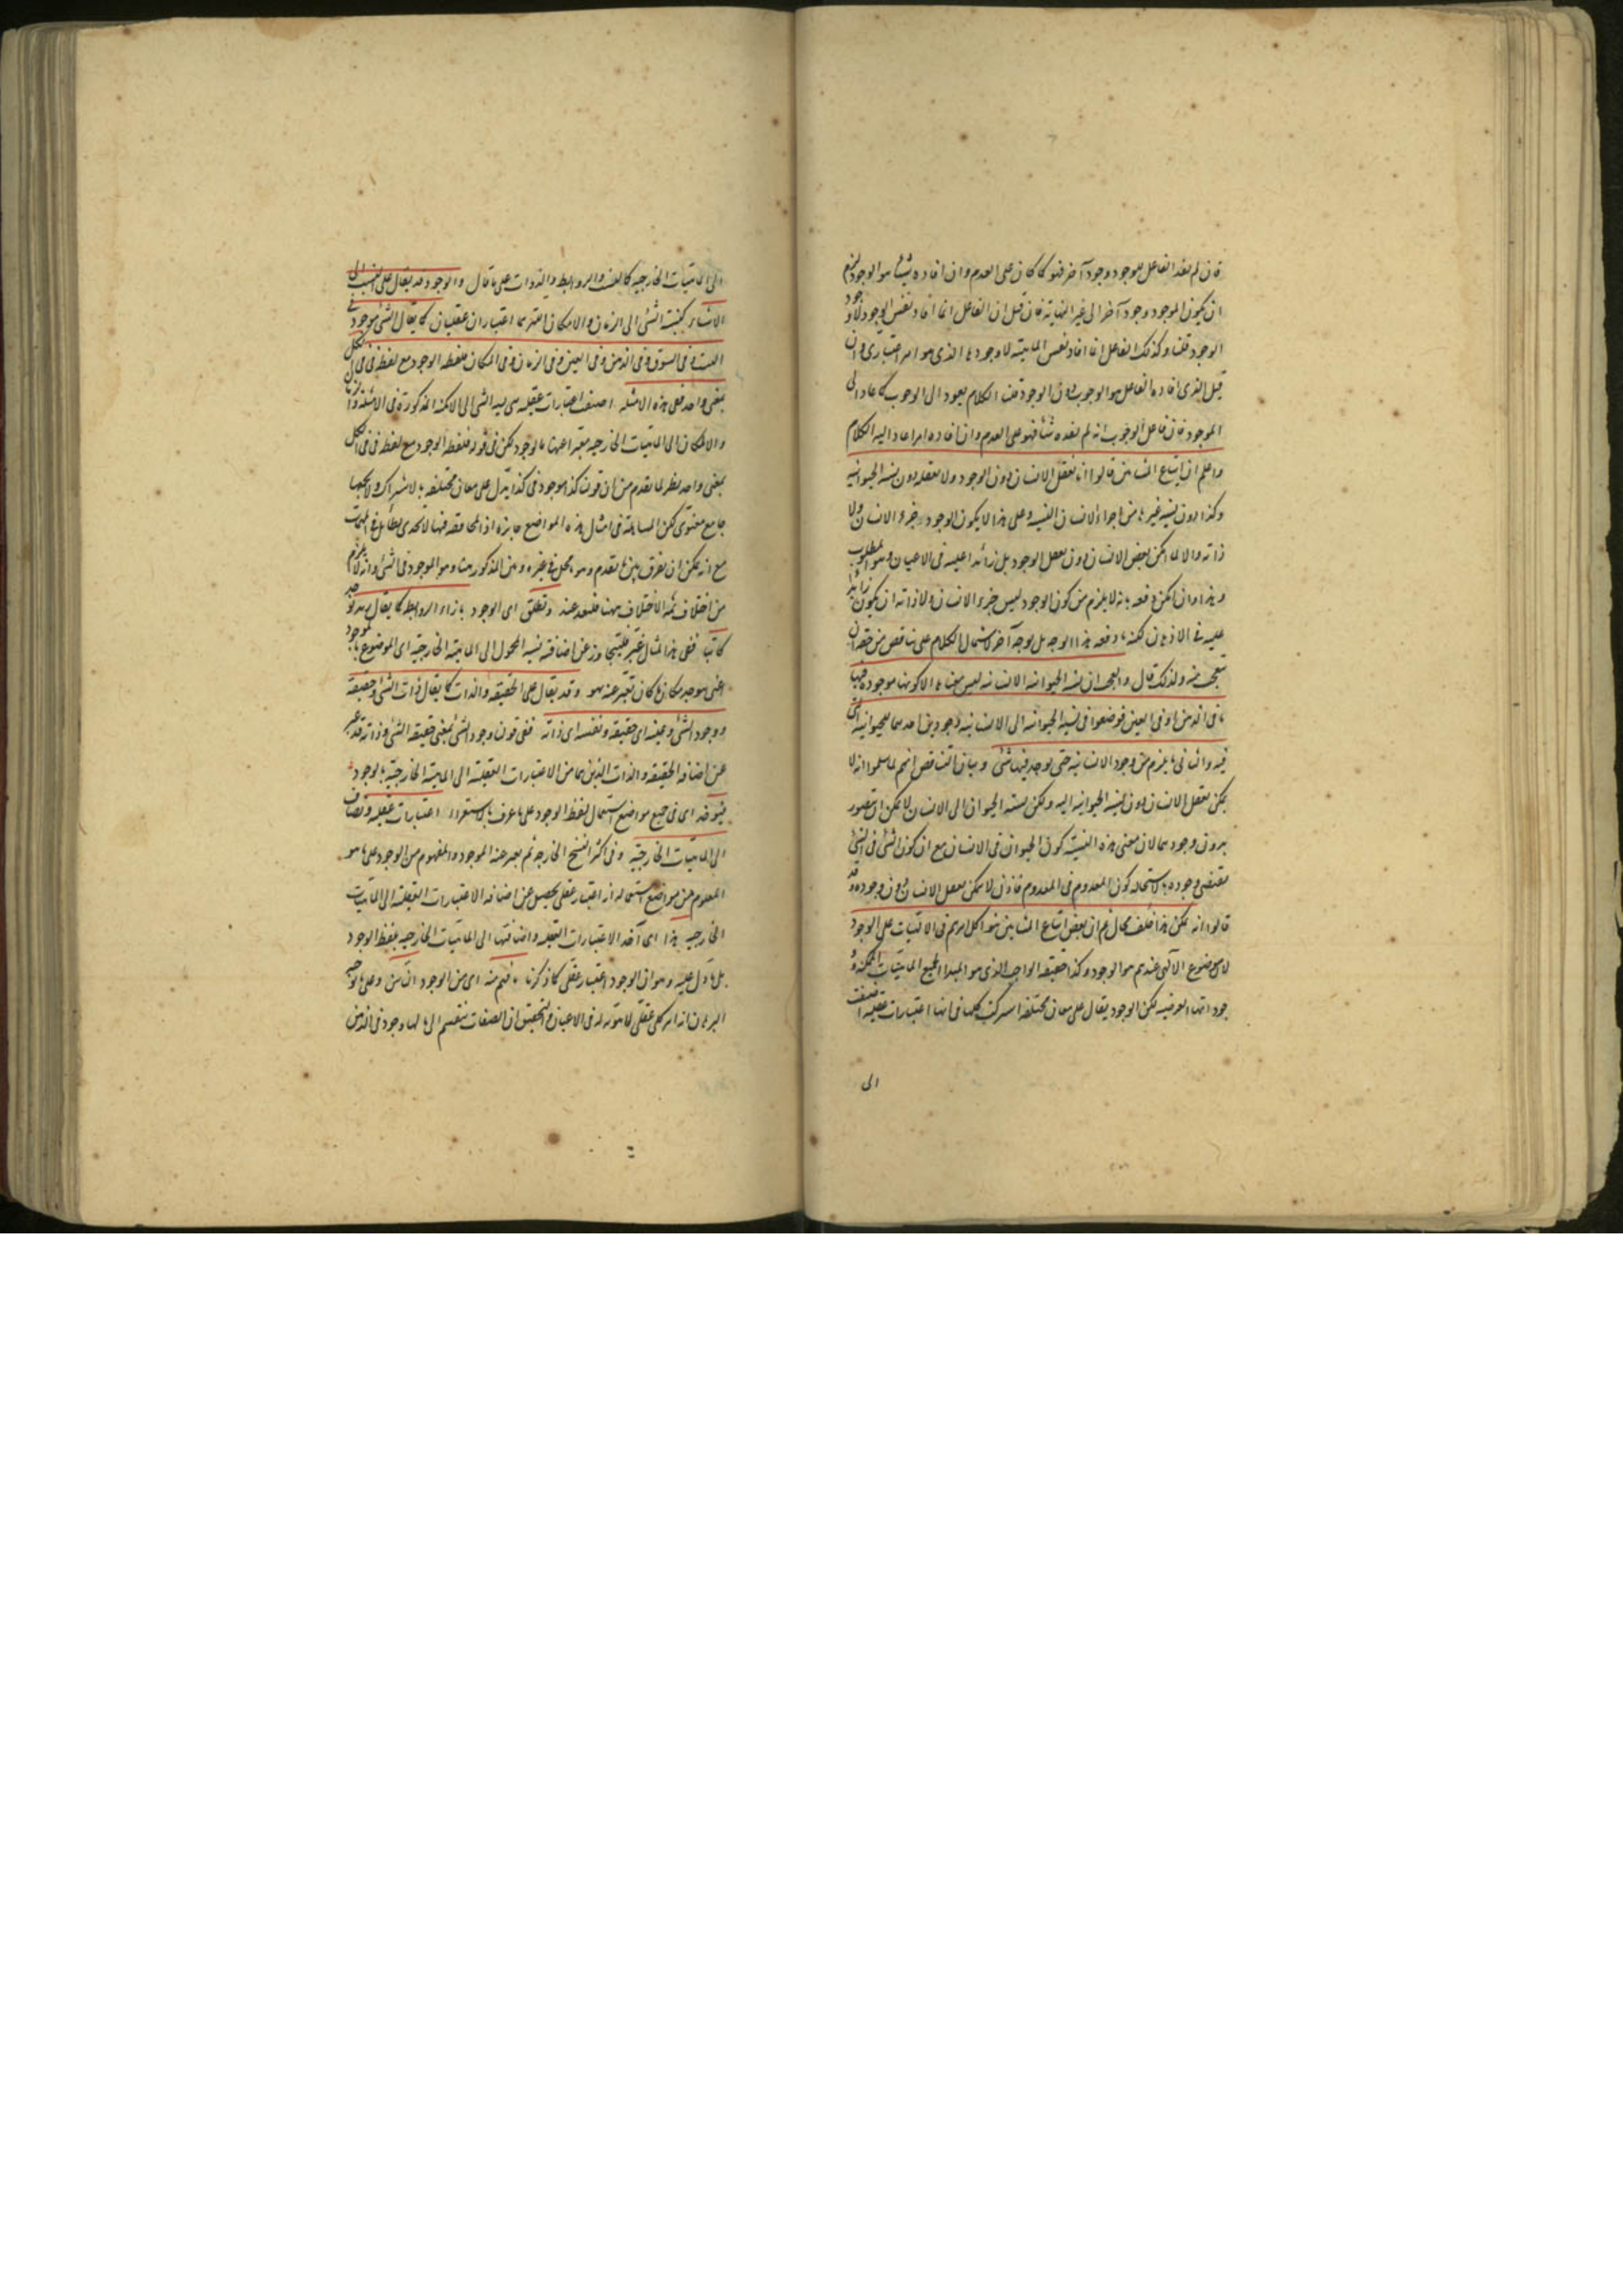 فان لم يفده الفاعل للوجود وجودا آخر فهو كما كان على العدم وان افاده شيئا هو الوجود لزم
ان يكون للوجود وجود آخر الى غير النهاية فان قيل ان الفاعل انما افاد نفس الوجود لا وجود
الوجود قلنا وكذلك الفاعل انما افاد نفس الماهية لا وجودها الذى هو امر اعتبارى وان
قيل الذى افاده الفاعل هو الوجوب دون الوجود قلنا الكلام يعود الى الوجوب كما عاد الى
الموجود فان فاعل الوجوب انه لم يفده شيئا فهو على العدم وان افاده امرا عاد اليه الكلام
واعلم ان اتباع المشائين قالوا انا نعقل الانسان دون الوجود ولا نعقله دون نسبة الحيوانية
وكذا دون نسبة غيرها من اجزاء الانسان اليه وعلى هذا لا يكون الوجود جزء الانسان ولا
ذاته والا لما امكن تعقل الانسان دون تعقل الوجود بل زائدا عليه فى الاعيان وهو المطلوب
وهذا وان امكن دفعه بانه لا يلزم من كون الوجود ليس جزء الانسان ولا ذاته ان يكون زائدا
عليه فى الاذهان لكنه ما دفعه بهذا الوجه بل بوجه آخر لاشتمال الكلام على تناقض من حقه ان
يتعجب منه ولذلك قال والعجب ان نسبة الحيوانية الى الانسانية ليس معناها الا كونها موجودة فيها
اما فى الذهن او فى العين فوضعوا فى نسبة الحيوانية الى الانسانية وجودين احدهما للحيوانية التى
فيه والثانى ما يلزم من وجود الانسانية حتى يوجد فيها شئ وبيان التناقض انهم لما سلموا انه لا
يمكن تعقل الانسان دون نسبة الحيوانية اليه ولكن نسبة الحيوان الى الانسان لا يمكن ان يتصور
بدون وجودهما لان معنى هذه النسبة كون الحيوان فى الانسان مع ان كون الشئ فى الشئ
مقتضى وجوده لاستحالة كون المعدوم فى المعدوم فاذن لا يمكن تعقل الانسان دون وجوده وقد
قالوا انه يمكن هذا خلف محال ثم ان بعض اتباع المشائين بنوا كل امرهم فى الالهيات على الوجود
لان موضوع الالهى عندهم هو الوجود وكذا حقيقة الواجب الذى هو المبدا لجميع الماهيات الممكنة
وجوداتها العرضية لكن الوجود يقال على معان مختلفة اشتركت كلها فى انها اعتبارات عقلية اضيفت
الى
الى الماهيات الخارجية كالنسب والروابط والذوات على ما قال والوجود قد يقال على النسب الى
الاشياء كنسبة الشئ الى الزمان والامكان اللذين هما اعتباران عقليان كما يقال الشئ موجود فى
البيت وفى السوق وفى الذهن وفى العين وفى الزمان وفى المكان فلفظة الوجود مع لفظة فى فى الكل
بمعنى واحد ففى هذه الامثلة اضيفت اعتبارات عقلية هى نسبة الشئ الى الامكنة المذكورة فى الامثلة والزمان
والامكان الى الماهيات الخارجية معبرا عنها بالوجود لكن فى قوله فلفظة الوجود مع لفظة فى فى الكل
بمعنى واحد نظر لما تقدم من ان قولنا كذا موجود فى كذا يدل على معان مختلفة بالاشتراك ولا يجمعها
جامع معنوى لكن المساهلة فى امثال هذه المواضع جائزة اذ المناقشة فيها لا تجدى بطائل فى المهمات
مع انه يمكن ان يفرق بين ما تقدم وهو ما يحل فى غيره وبين المذكور ههنا وهو الموجود فى الشئ وانه لا يلزم
من اختلاف ثمة الاختلاف ههنا فليعد عنه ويطلق اى الوجود بازاء الروابط كما يقال زيد يوجد
كاتبا ففى هذا المثال عن اضافة نسبة المحمول الى الماهية الخارجية اى الموضوع بالموجود
اعنى هو يوجد مكان ما كان يعبر عنه بهو وقد يقال على الحقيقة والذات كما يقال ذات الشئ وحقيقته
ووجود الشئ وعينه اى حقيقته ونفسه اى ذاته ففى قولنا وجود الشئ بمعنى حقيقة الشئ وذاته قد عبر
عن اضافة الحقيقة والذات اللذين هما من الاعتبارات العقلية الى الماهية الخارجية بالوجود
فيؤخذ اى فى جميع مواضع استعمال لفظ الوجود على ما عرف بالاستقراء اعتبارات عقلية وتضاف
الى الماهيات الخارجية وفى اكثر النسخ الخارجة ثم يعبر عنه الموجود والمفهوم من الوجود على ما هو
المعلوم من مواضع استعماله انه اعتبار عقلى يحصل عن اضافة الاعتبارات العقلية الى الماهيات
الخارجية هذا اى اخذ الاعتبارات العقلية واضافتها الى الماهيات الخارجية بلفظ الوجود
بل ما دل عليه وهو ان الوجود اعتبار عقلى كما ذكرنا ما فهم منه اى من الوجود الناس وعلى ما يوجبه
البرهان انه امر كلى عقلى لا هوية له فى الاعيان والتحقيق ان الصفات تنقسم الى ما لها وجود فى الذهن